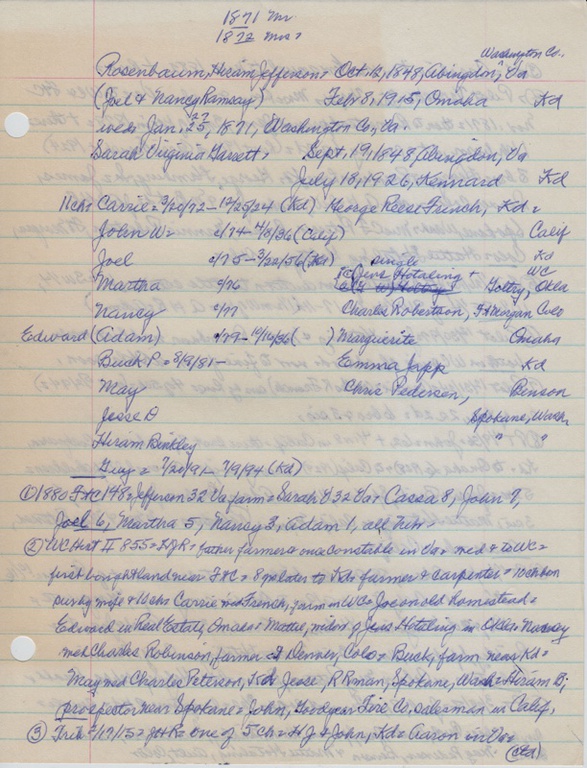 1871 Mr
1872 Mrs?
Washington Co.,
Rosenbaum, Hiram Jefferson = Oct. 12, 1848, Abingdon, Va
(Joel & Nancy Ramsay) Feb 8, 1915, Omaha Kd
wed = Jan. 25, 1871, Washington Co, Va.
Sarah Virginia Garrett = Sept. 19, 1848, Abingdon, Va
July 18, 1926, Kennard Kd
11ch = Carrie = 3/20/72 - 12/25/24 (Kd) George Reese French, Kd =
John W = c/74 - 4/8/36 (Calif) Calif
Joel c/75 - 3/20/56 (Kd) single Kd
Martha c/76 Jens Hotaling + WC Goltry, Okla
Nancy c/77 Charles Robertson, Ft Morgan Colo
Edward (Adam) c/79 - 10/16/36 ( ) Marguerite Omaha
Buck P = 8/9/81 - Emma Japp Kd
May Chris Pedersen, Benson
Jesse D Spokane, Wash.
Hiram Binkley " "
Guy = 7/20/91 - 7/9/94 (Kd)
① 1880 FtC 198 = Jefferson 32 Va farm = Sarah V 32 Va = Cassa 8, John 7,
Joel 6, Martha 5, Nancy 3, Adam 1, all Nebr =
② WC Hist II 855 = HJR = father farmer & once constable in Va = med & to WC =
first bought land near FtC = 8 yr later to Kd = farmer & carpenter = 10 ch
surv by wife & 10 chs Carrie med French, farm in WC = Joe on old homestead =
Edward in Real Estate, Omaha = Mattie, widow of Jens Hotaling in Okla = Nancy
med Charles Robinson, farmer Denver, Colo = Buck, farm near Kd =
May med Charles Peterson, Kd = Jesse, RR man, Spokane, Wash = Hiram B,
prospector near Spokane = John, Goodyear Tire Co, salesman in Calif.
③ Trib 2/19/15 = HJR = one of 5 ch = HJ & John, Kd = Aaron in Va =